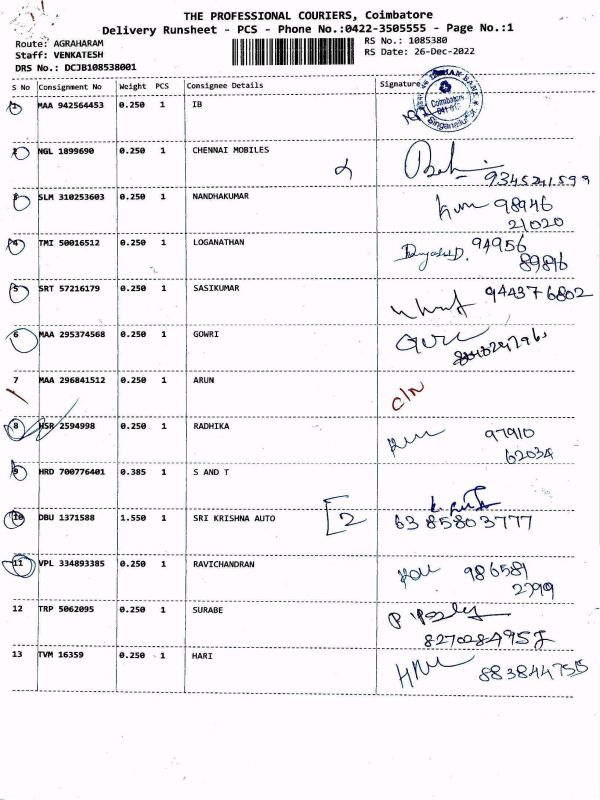 THE PROFESSIONAL COURIERS, Coimbatore
Delivery Runsheet - PCS - Phone No.:0422-3505555 - Page No.:1
Route: AGRAHARAM RS No.: 1085380
Staff: VENKATESH RS Date: 26-Dec-2022
DRS No.: DCJB108538001
S No Consignment No Weight PCS Consignee Details Signature
1 MAA 942564453 0.250 1 IB
INDIAN BANK
Coimbatore
Singanallur
2 NGL 1899690 0.250 1 CHENNAI MOBILES
9345241599
3 SLM 310253603 0.250 1 NANDHAKUMAR 98946
21020
4 TMI 50016512 0.250 1 LOGANATHAN 94956
89816
5 SRT 57216179 0.250 1 SASIKUMAR 944376802
6 MAA 295374568 0.250 1 GOWRI
7 MAA 296841512 0.250 1 ARUN
C/N
8 HSR 2594998 0.250 1 RADHIKA 97910
62034
9 HRD 700776401 0.385 1 S AND T
10 DBU 1371588 1.550 1 SRI KRISHNA AUTO [2 6385803777
11 VPL 334893385 0.250 1 RAVICHANDRAN 986581
27919
12 TRP 5062095 0.250 1 SURABE
8270284957
13 TVM 16359 0.250 1 HARI
883844755